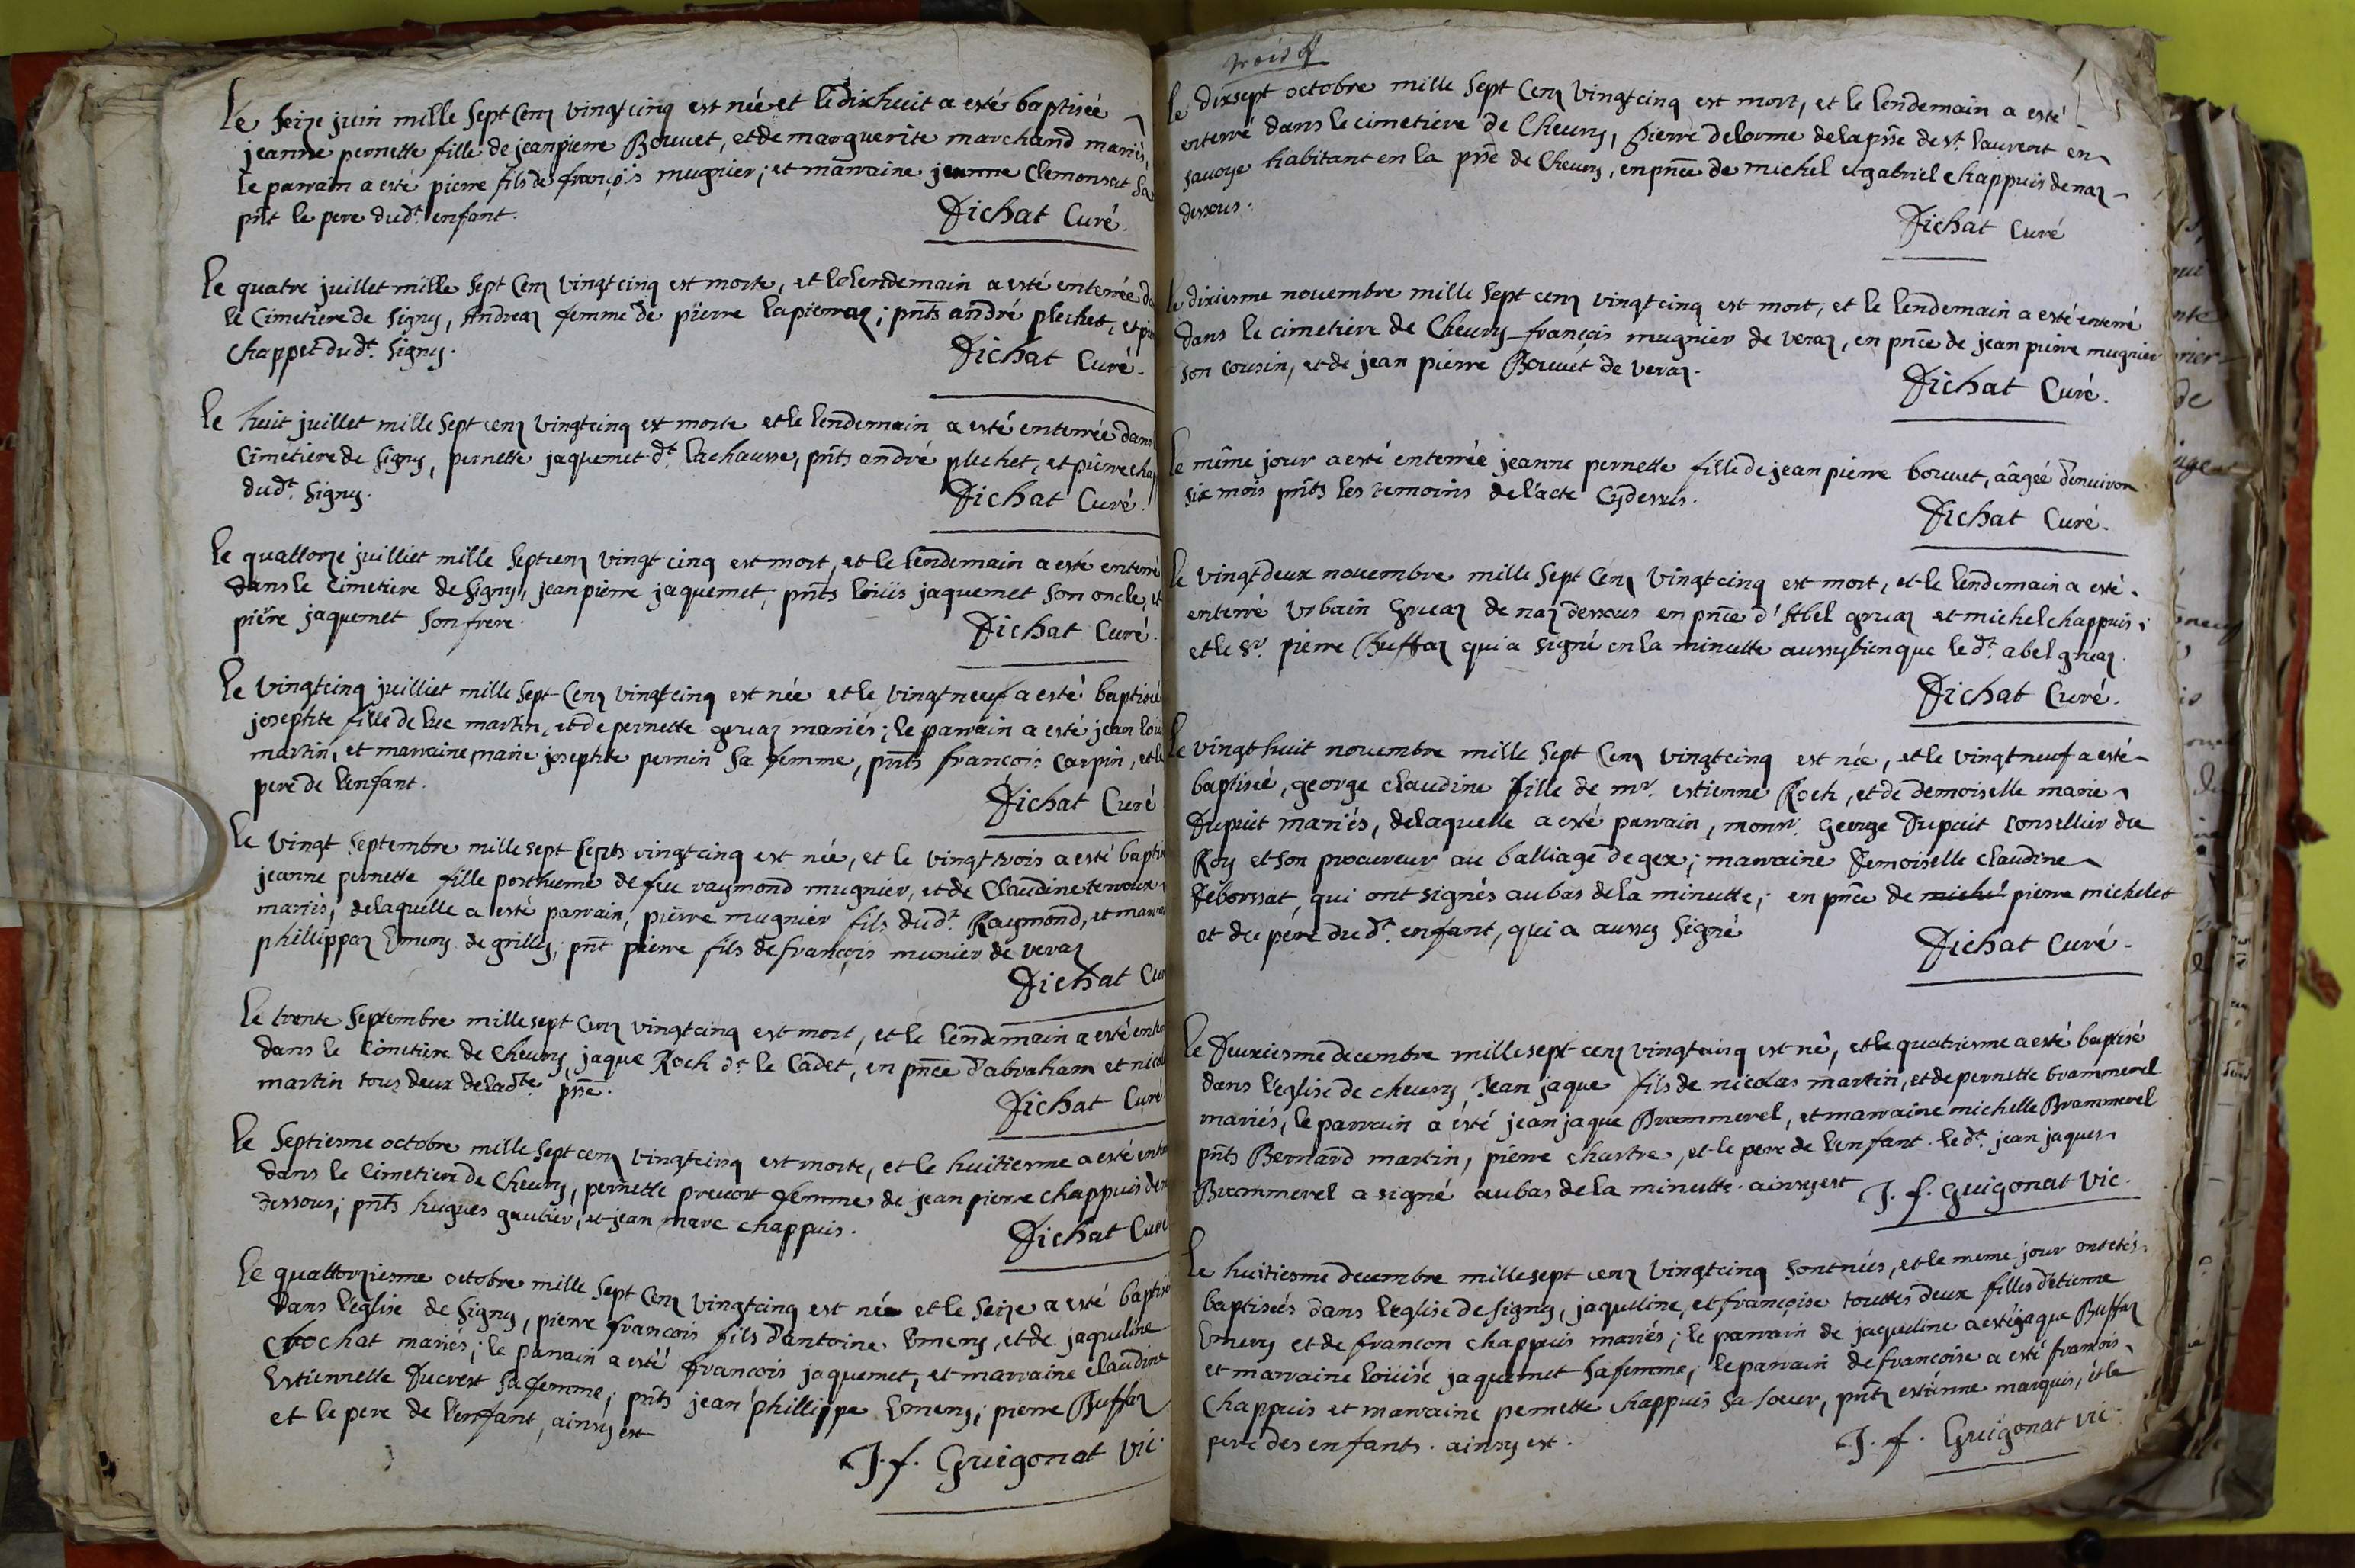 Le seize juin mille sept cenz vingt cinq est née et le dixhuit a esté baptisée
jeanne pernette fille de jean pierre Bouvet, et de marguerite marchand mariés,
le parrain a esté pierre fils de françois mugnier; et marraine jeanne Clemonsat
pnt le pere dudt. enfant.
Dichat Curé.
le quatre juillet mille sept cenz vingt cinq est morte, et le lendemain a esté enterrée
le Cimetiere de Signy, Andreaz femme de pierre lapierraz; pnts andré plechet, et
Chappet dudt. Signy.
Dichat Curé.
le huit juillet mille sept cenz vingt cinq est morte et le lendemain a esté enterrée dans
Cimetiere de Signy, pernette jaquemet dt. lachausse, pnts andré plechet, et pierre
dudt. Signy.
Dichat Curé.
le quattorze juilliet mille sept cenz vingt cinq est mort, et le lendemain a esté enterré
dans le Cimetiere de Signy, jean pierre jaquemet, pnts loüis jaquemet son oncle, et
pierre jaquemet son frere.
Dichat Curé.
Le vingt cinq juilliet mille sept cenz vingt cinq est née et le vingt neuf a esté baptisée
josephte fille de luc martin, et de pernette gruaz mariés; le parrain a esté jean
martin, et marraine marie josephte pernin sa femme, pnts françois Carpin, et le
pere de l'enfant.
Dichat Curé
Le vingt septembre mille sept cents vingt cinq est née, et le vingt trois a esté
jeanne pernette fille posthume de feu raymond mugnier, et de Claudine
mariés, de laquelle a esté parrain, pierre mugnier fils dudt. Raymond, et
phillippaz Emery de grilly, pnt pierre fils de françois munier de veraz
Dichat
Le trente septembre mille sept cenz vingt cinq est mort, et le lendemain a esté
dans le Cimetiere de Chevry, jaque Roch dt. le Cadet, en pnce d'abraham et
martin tous deux de ladte. psse.
Dichat Curé
le septiesme octobre mille sept cenz vingt cinq est morte, et le huitiesme a esté
dans le Cimetiere de Chevry, pernette prevost femme de jean pierre chappuis
dessous; pnts hugues gautier, et jean marc chappuis.
Dichat Curé
Le quattorziesme octobre mille sept cenz vingt cinq est né et le seize a esté
dans l'eglise de Signy, pierre françois fils d'antoine Emery, et de jaqueline
Crochat mariés; le parrain a esté françois jaquemet, et marraine claudine
Estiennette Ducrest sa femme; pnts jean phillippe Emery; pierre Buffaz
et le pere de l'enfant, ainsy est
J. f. Guigonat vic.
le dixsept octobre mille sept cenz vingt cinq est mort, et le lendemain a esté
enterré dans le cimetiere de Chevry, pierre delorme de la psse de st. laurent en
savoye habitant en la psse de Chevry, en pnce de michel et gabriel chappuis de naz
dessous.
Dichat Curé
le dixiesme novembre mille sept cenz vingt cinq est mort, et le lendemain a esté enterré
dans le cimetiere de Chevry françois mugnier de veraz, en pnce de jean pierre mugnier
son cousin, et de jean pierre Bouvet de veraz.
Dichat Curé.
le même jour a esté enterrée jeanne pernette fille de jean pierre bouvet, aâgée d'environ
six mois pnts les temoins de l'acte Cydessus.
Dichat Curé.
le vingt deux novembre mille sept cenz vingt cinq est mort, et le lendemain a esté
enterré Urbain Gruaz de naz dessous en pnce d'Abel gruaz et michel chappuis;
et le Sr. pierre Buffaz qui a signé en la minutte aussy bien que le dt. abel gruaz.
Dichat Curé.
Le vingt huit novembre mille sept cenz vingt cinq est née, et le vingt neuf a esté
baptisée, george claudine fille de mr. estienne Roch, et de demoiselle marie
Dupuit mariés, de laquelle a esté parrain, monsr. george Dupuit Consellier du
Roy et son procureur au balliage de gex; marraine Demoiselle claudine
Debossat, qui ont signés au bas de la minutte; en pnce de miche pierre michelet
et du pere du dt. enfant, qui a aussy signé
Dichat Curé.
le Deuxiesme decembre mille sept cenz vingt cinq est né, et le quatriesme a esté baptisé
dans l'eglise de chevry Jean jaque fils de nicolas martin, et de pernette brammerel
mariés, le parrain a ésté jean jaque Brammerel, et marraine michelle Brammerel
pnts Bernard martin, pierre chartre, et le pere de l'enfant. le dt. jean jaques
Brammerel a signé au bas de la minutte. ainsy est J. f. Guigonat vic.
Le huitiesme decembre mille sept cenz vingt cinq sont nées, et le meme jour ont etés
baptisées dans l'eglise de signy, jaqueline, et françoise touttes deux filles d'etienne
Emery et de françon chappuis mariés; le parrain de jaqueline a esté jaque Buffaz
et marraine loüise jaquemet sa femme; le parrain de francoise a esté francois
Chappuis et marraine pernette chappuis sa soeur, pnts estienne marquis, et le
pere des enfants. ainsy est.
J. f. Guigonat vic.